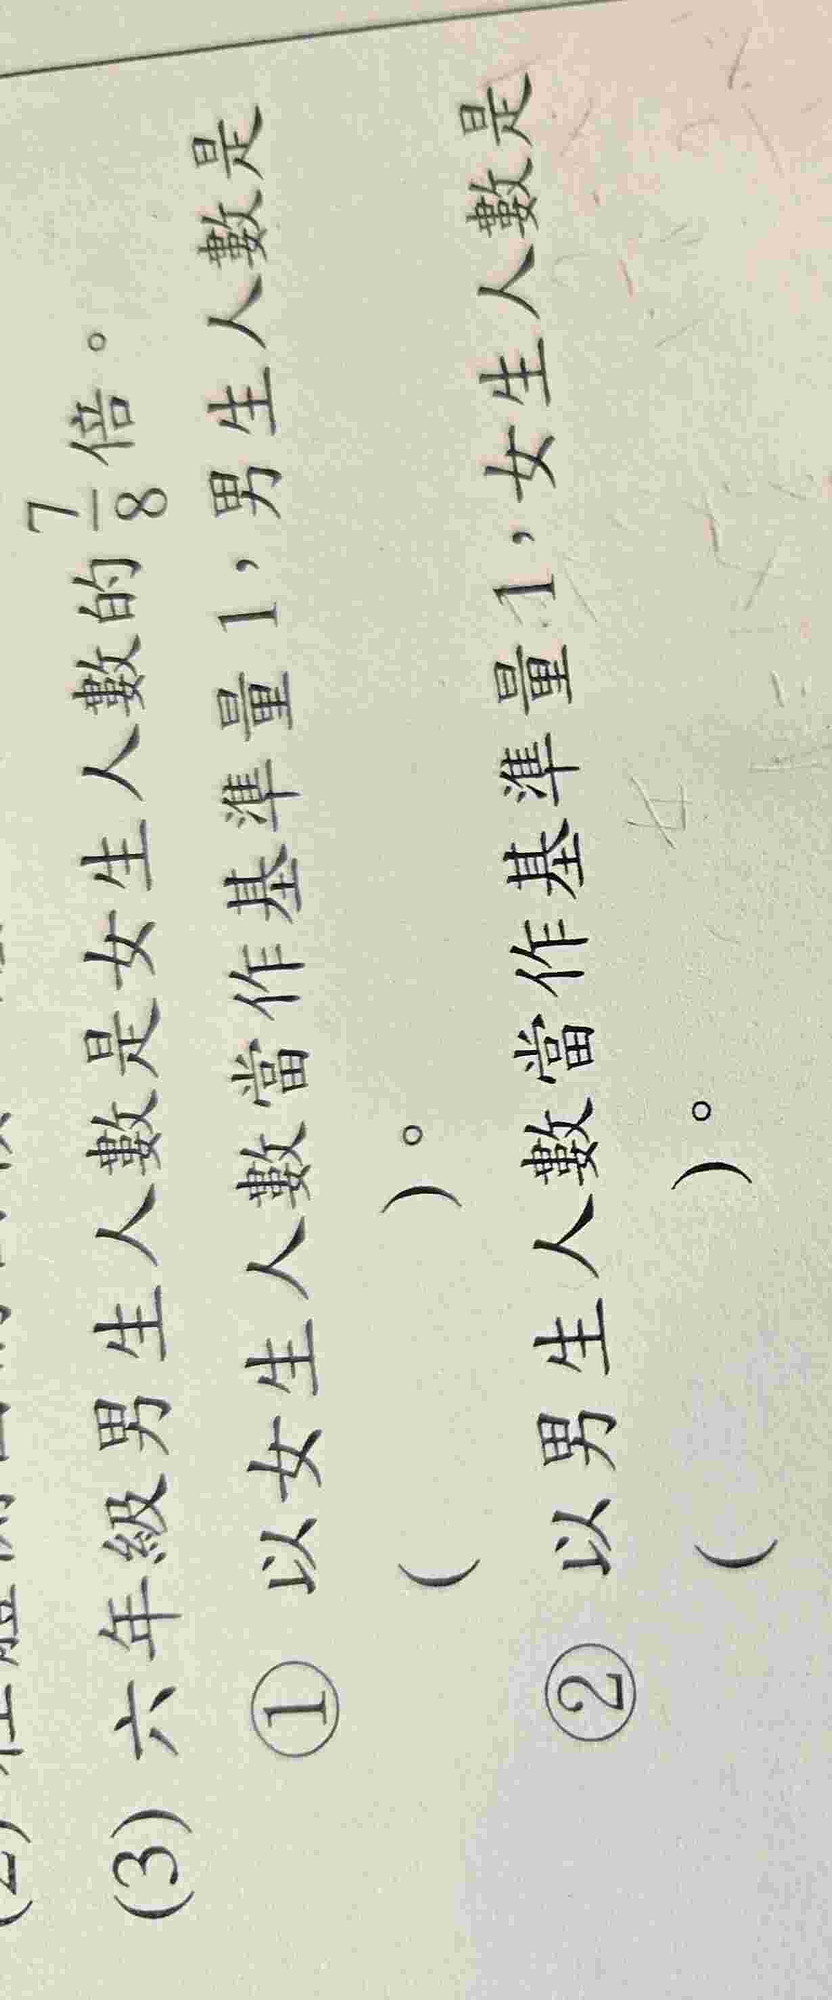 (3) 六年級男生人數是女生人數的 7/8 倍。
① 以女生人數當作基準量 1，男生人數是
(　　　　)。
② 以男生人數當作基準量 1，女生人數是
(　　　　)。